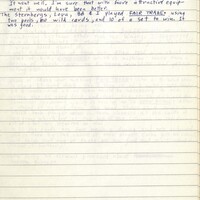 It went well, I'm sure that with more attractive equip-
ment it would have been better.
The Sternbergs, Lope, & I played using
two packs, wild cards, and 10 of a set to win. It
was good.